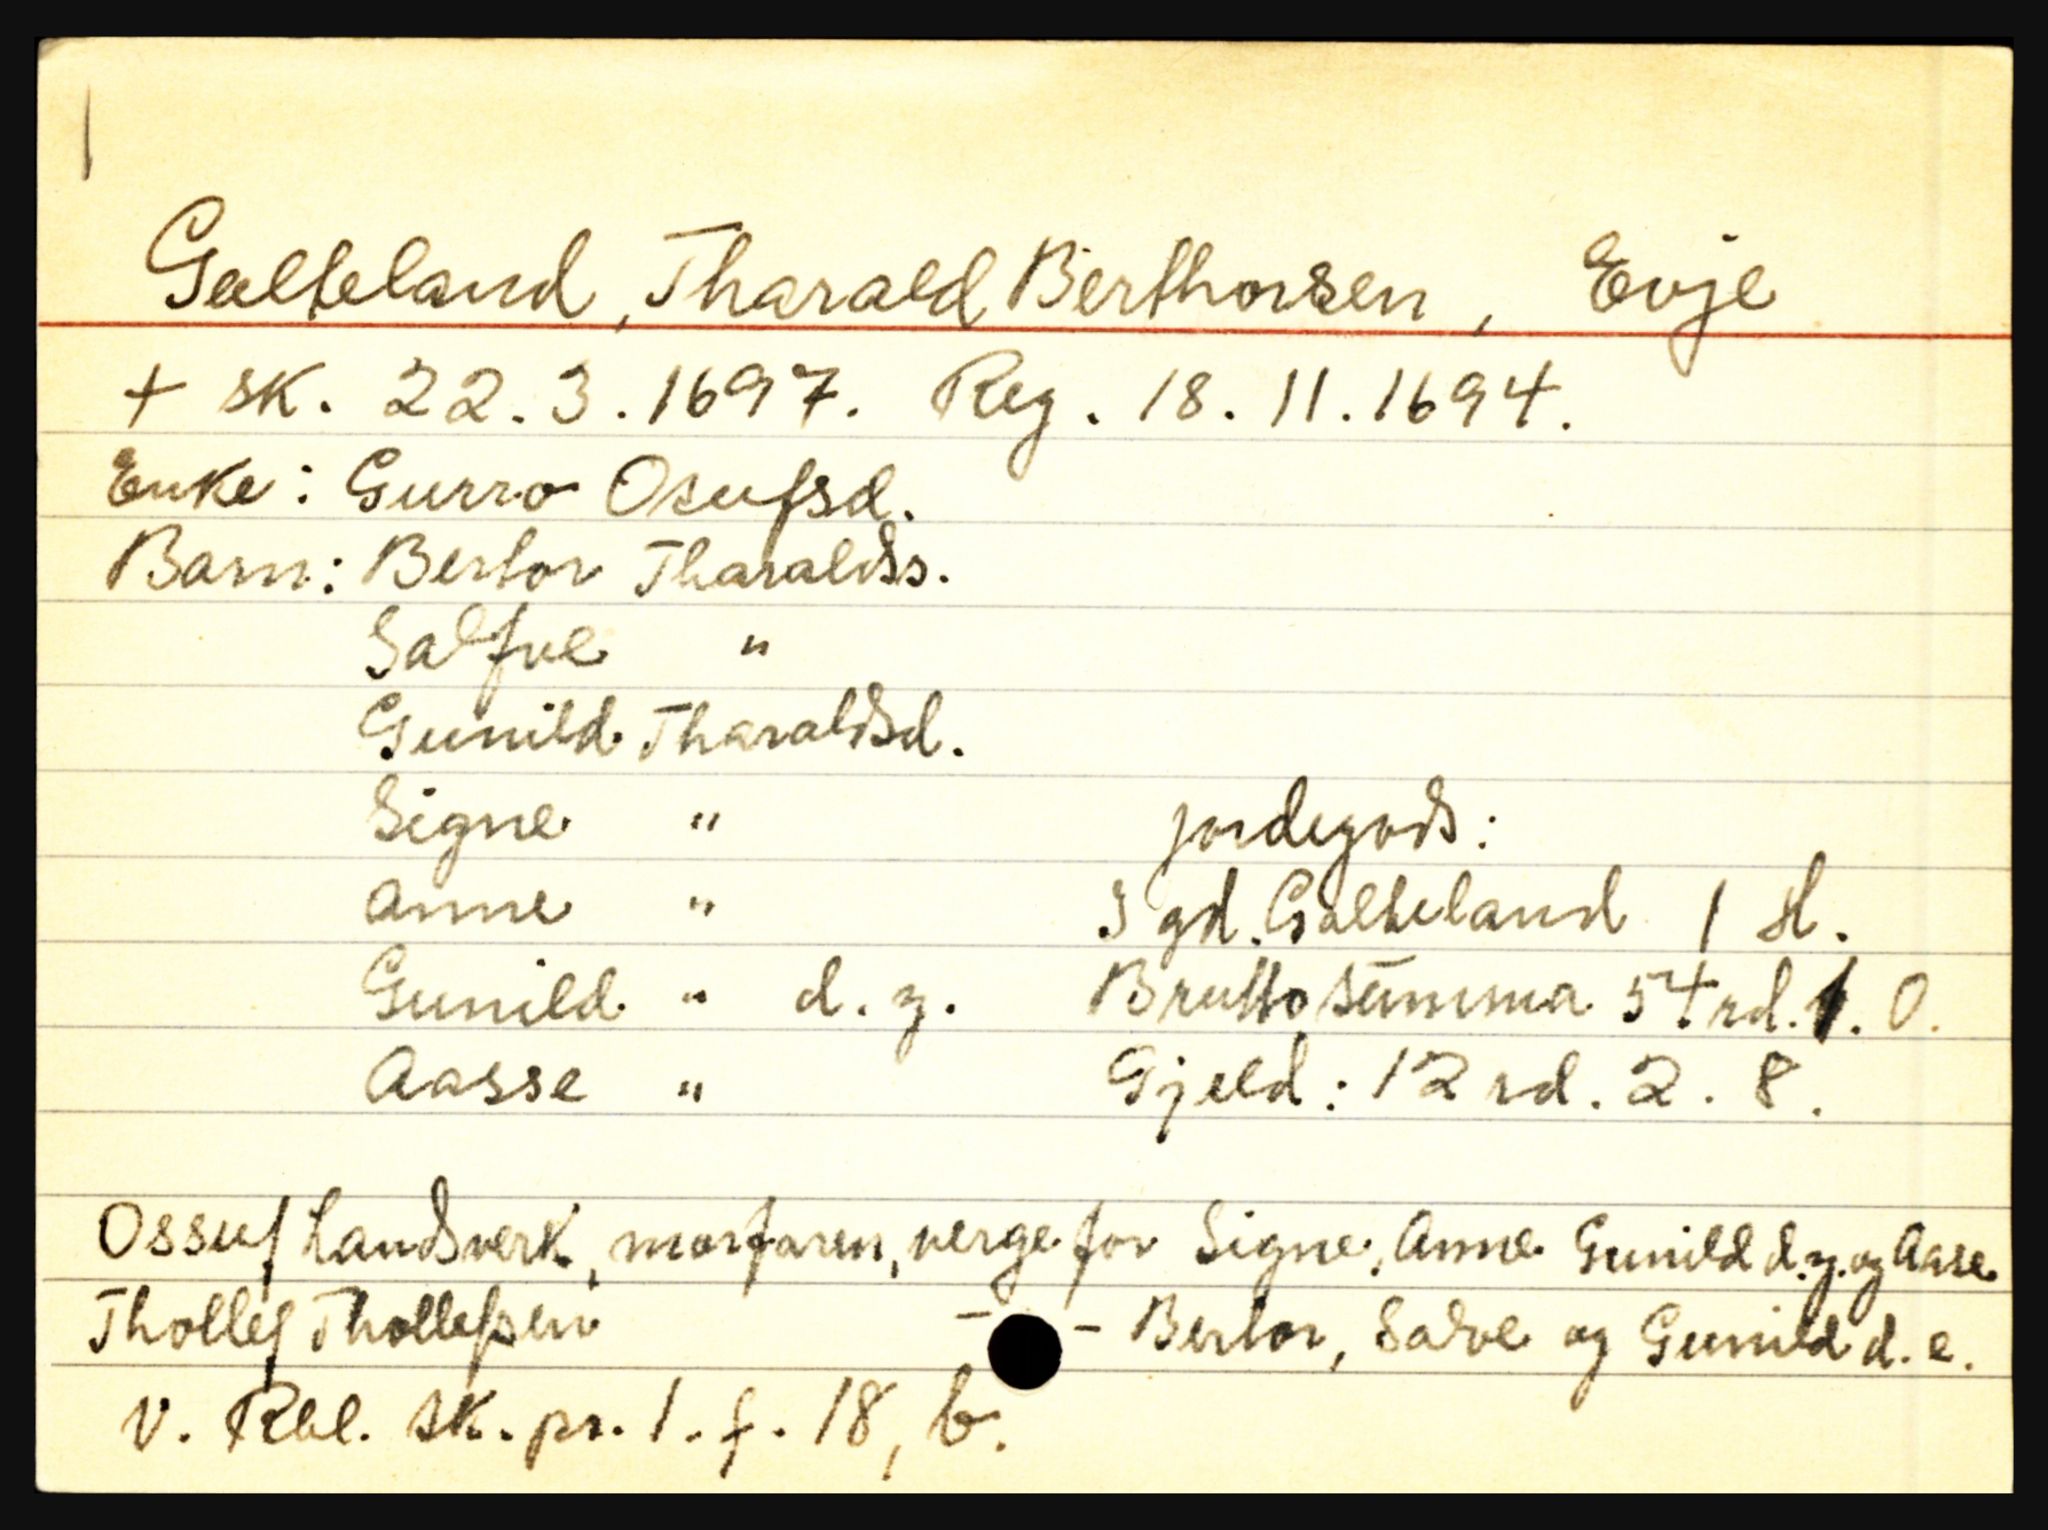 Galteland, Tharald Berthorsen, Evje
+ sk. 22.3.1697. Reg. 18.11.1694.
Enke: Gurro Osufsd.
Barn: Bertor Tharaldss.
Salfve "
Gunild Tharaldsd.
Signe "
Anne "
Gunild " d.y.
Aasse "
jordegods:
I gd. Galteland 1 sl.
Brutto summa 54 rd. 1. 0.
Gjeld: 12 rd. 2. 8.
Ossuf Landsverk, morfaren, verge for Signe, Anne Gunild d.y. og Aase
Thollef Thollefsen - - Bertor, Salve og Gunild d.e.
V. Rbl. sk.pr. 1. f. 18, b.